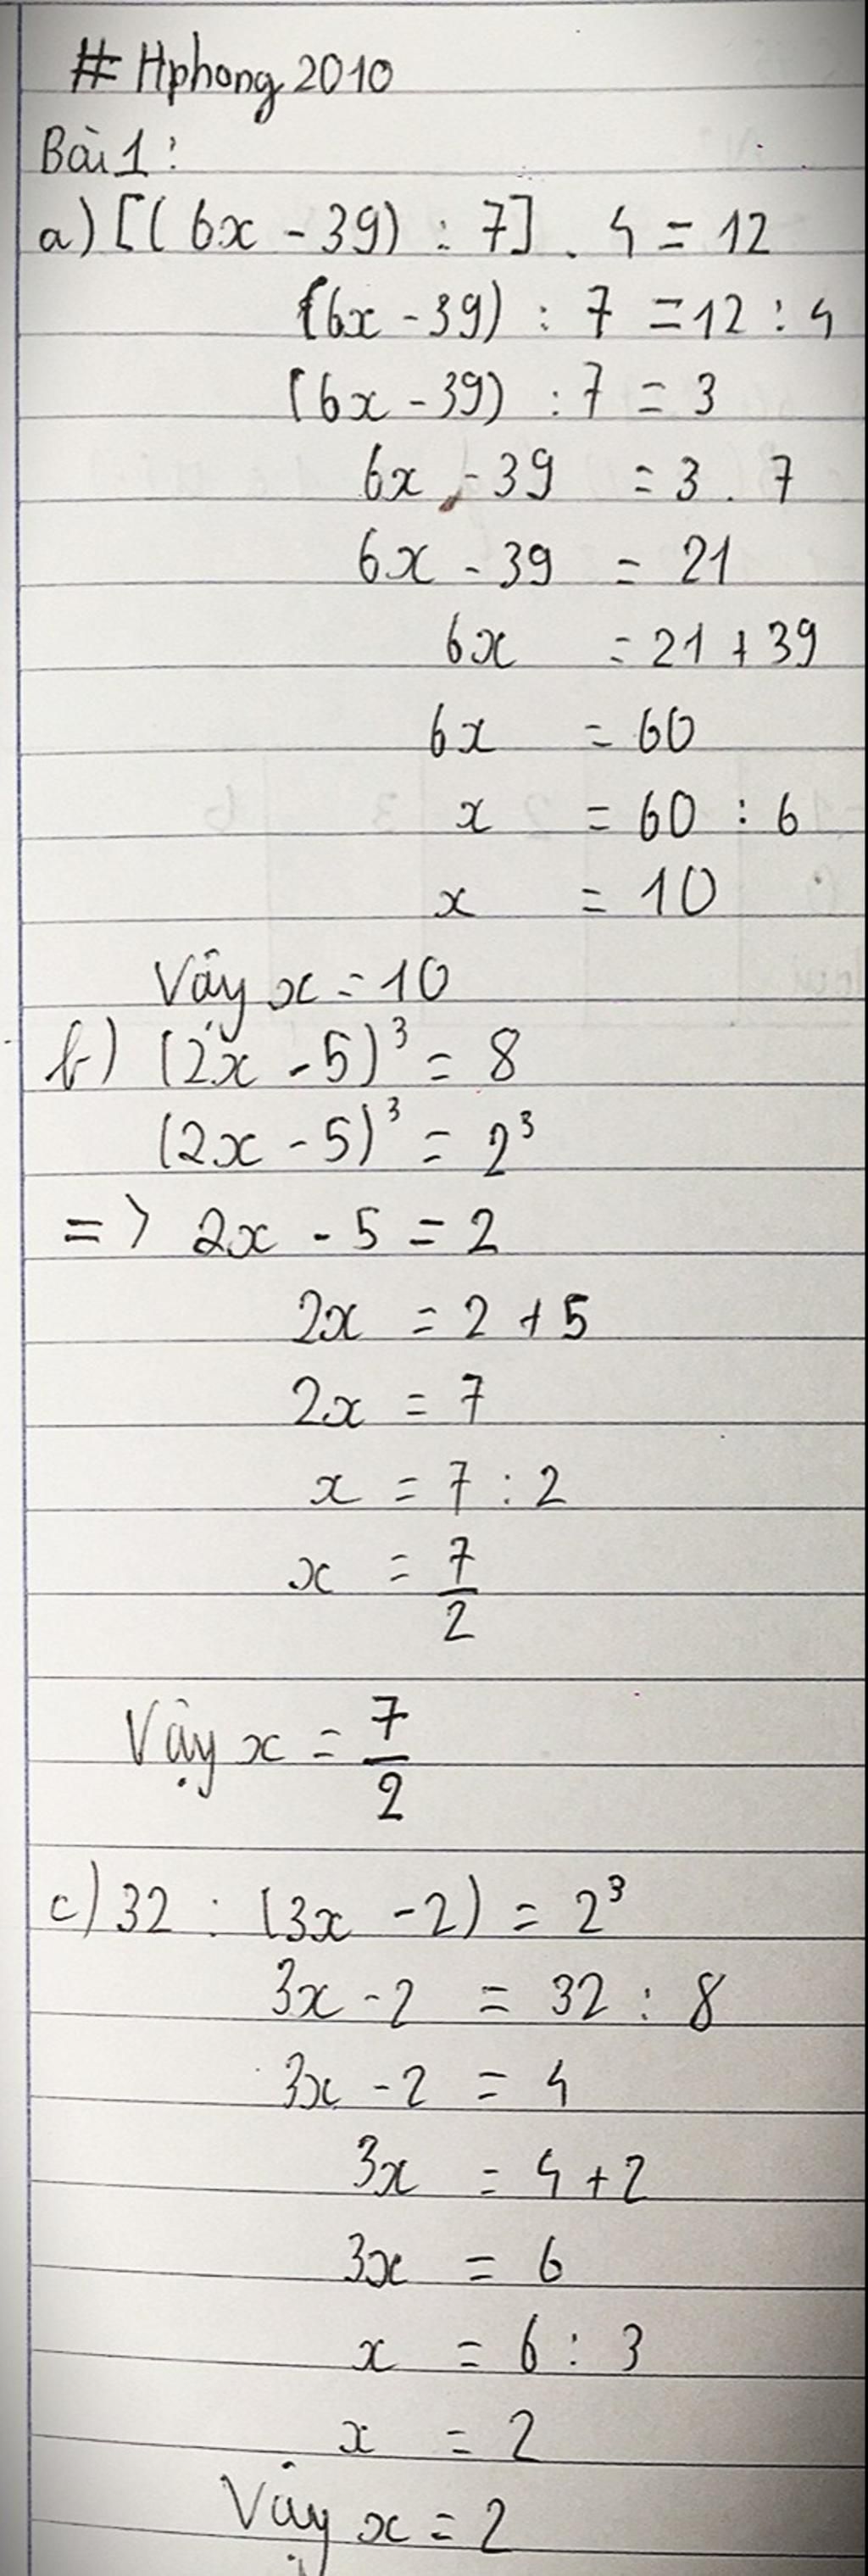 # Hphong 2010
Bài 1:
a) [(6x - 39) : 7] . 4 = 12
(6x - 39) : 7 = 12 : 4
(6x - 39) : 7 = 3
6x - 39 = 3 . 7
6x - 39 = 21
6x = 21 + 39
6x = 60
x = 60 : 6
x = 10
Vậy x = 10
b) (2x - 5)³ = 8
(2x - 5)³ = 2³
=> 2x - 5 = 2
2x = 2 + 5
2x = 7
x = 7 : 2
x = 7/2
Vậy x = 7/2
c) 32 : (3x - 2) = 2³
3x - 2 = 32 : 8
3x - 2 = 4
3x = 4 + 2
3x = 6
x = 6 : 3
x = 2
Vậy x = 2